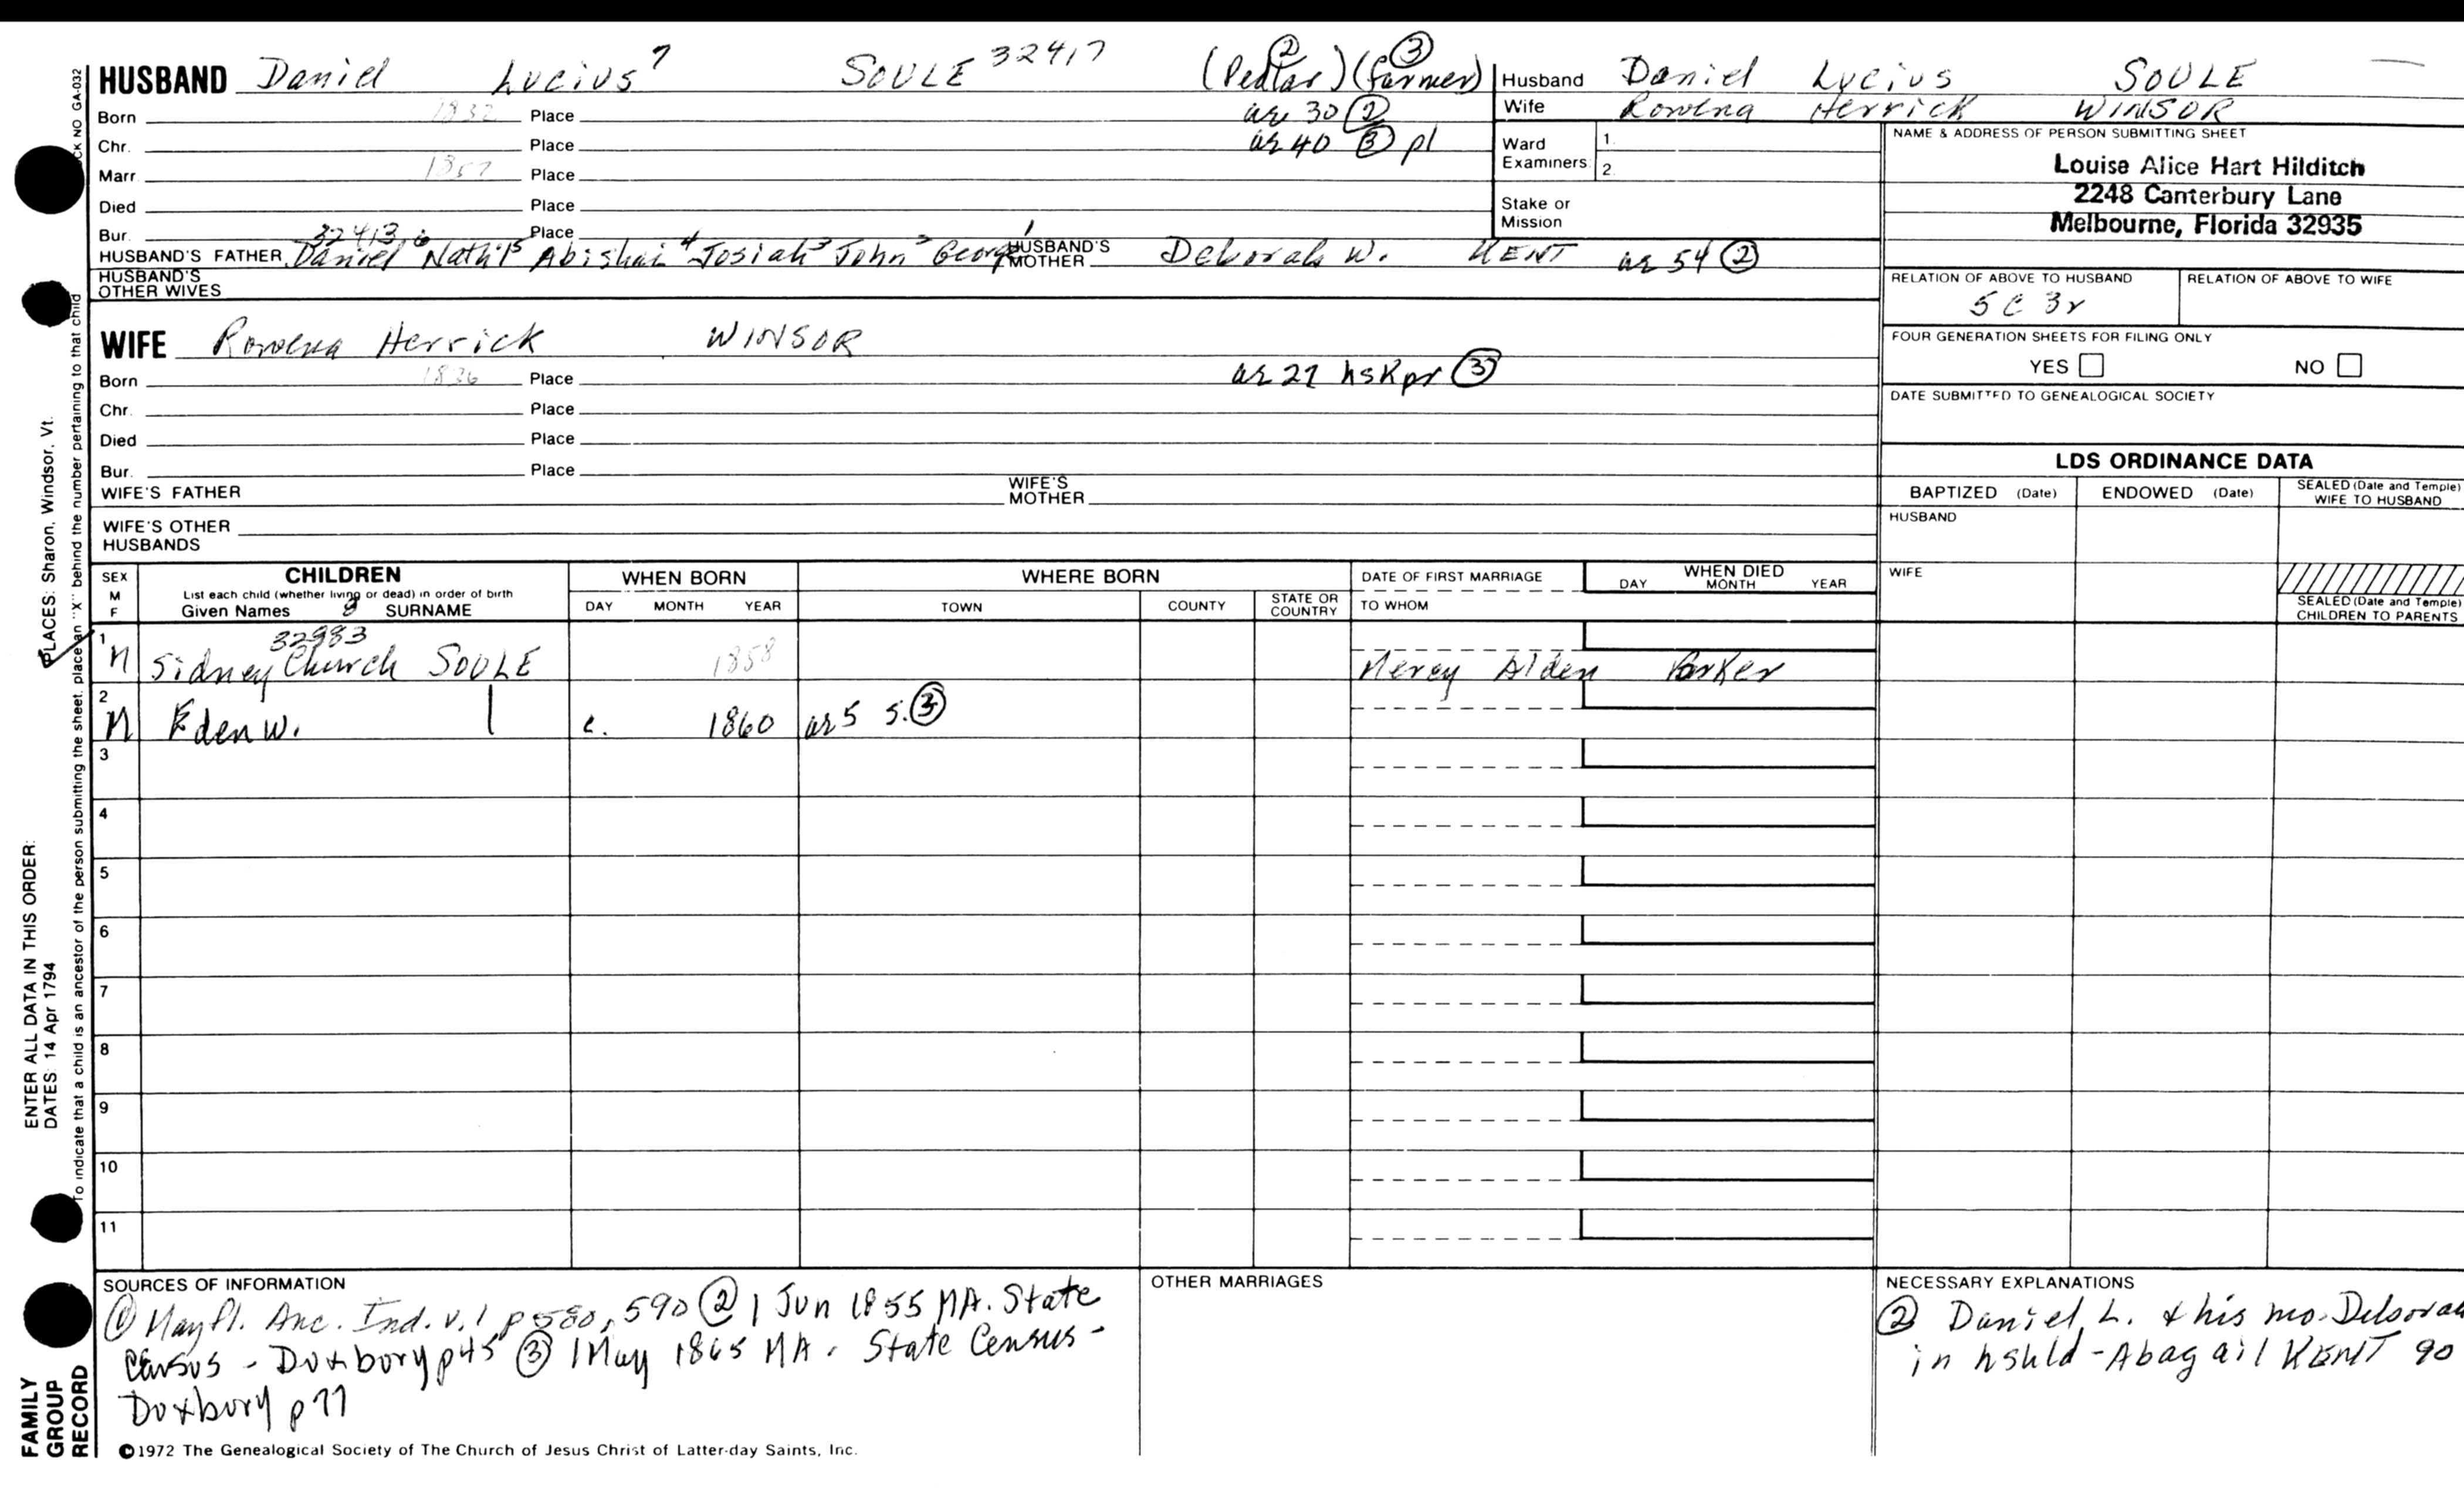 HUSBAND Daniel Lucius 7 SOULE 32417 (Pedlar) ② (farmer) ③
Born 1832 Place ae 30 ②
Chr. Place ae 40 ③ pl
Marr. 1857 Place
Died Place
Bur. Place
32413
HUSBAND'S FATHER Daniel 6 Nath'l 5 Abishai 4 Josiah 3 John 2 George 1 HUSBAND'S MOTHER Deborah W. KENT ae 54 ②
HUSBAND'S OTHER WIVES
WIFE Rowena Herrick WINSOR
Born 1836 Place ae 27 hskpr ③
Chr. Place
Died Place
Bur. Place
WIFE'S FATHER WIFE'S MOTHER
WIFE'S OTHER HUSBANDS
Husband Daniel Lucius SOULE
Wife Rowena Herrick WINSOR
Ward Examiners: 1. 2.
Stake or Mission
NAME & ADDRESS OF PERSON SUBMITTING SHEET
Louise Alice Hart Hilditch
2248 Canterbury Lane
Melbourne, Florida 32935
RELATION OF ABOVE TO HUSBAND RELATION OF ABOVE TO WIFE
5 C 3r
FOUR GENERATION SHEETS FOR FILING ONLY
YES NO
DATE SUBMITTED TO GENEALOGICAL SOCIETY
LDS ORDINANCE DATA
BAPTIZED (Date) ENDOWED (Date) SEALED (Date and Temple) WIFE TO HUSBAND
HUSBAND
WIFE
SEALED (Date and Temple) CHILDREN TO PARENTS
SEX M F
CHILDREN
List each child (whether living or dead) in order of birth
Given Names 8 SURNAME
WHEN BORN
DAY MONTH YEAR
WHERE BORN
TOWN COUNTY STATE OR COUNTRY
DATE OF FIRST MARRIAGE
TO WHOM
WHEN DIED
DAY MONTH YEAR
32983
1 M Sidney Church SOULE 1858 Mercy Alden Parker
2 M Eden W. | c. 1860 ae 5 s. ③
3
4
5
6
7
8
9
10
11
SOURCES OF INFORMATION
① Mayfl. Anc. Ind. v. 1 p 580, 590 ② 1 Jun 1855 MA. State
Census - Duxbury p 45 ③ 1 May 1865 MA. State Census -
Duxbury p 77
OTHER MARRIAGES
NECESSARY EXPLANATIONS
② Daniel L. & his mo. Deborah
in hshld - Abagail KENT 90
©1972 The Genealogical Society of The Church of Jesus Christ of Latter-day Saints, Inc.
FAMILY GROUP RECORD
ENTER ALL DATA IN THIS ORDER:
DATES: 14 Apr 1794
PLACES: Sharon, Windsor, Vt.
To indicate that a child is an ancestor of the person submitting the sheet, place an "X" behind the number pertaining to that child
CK NO GA-032